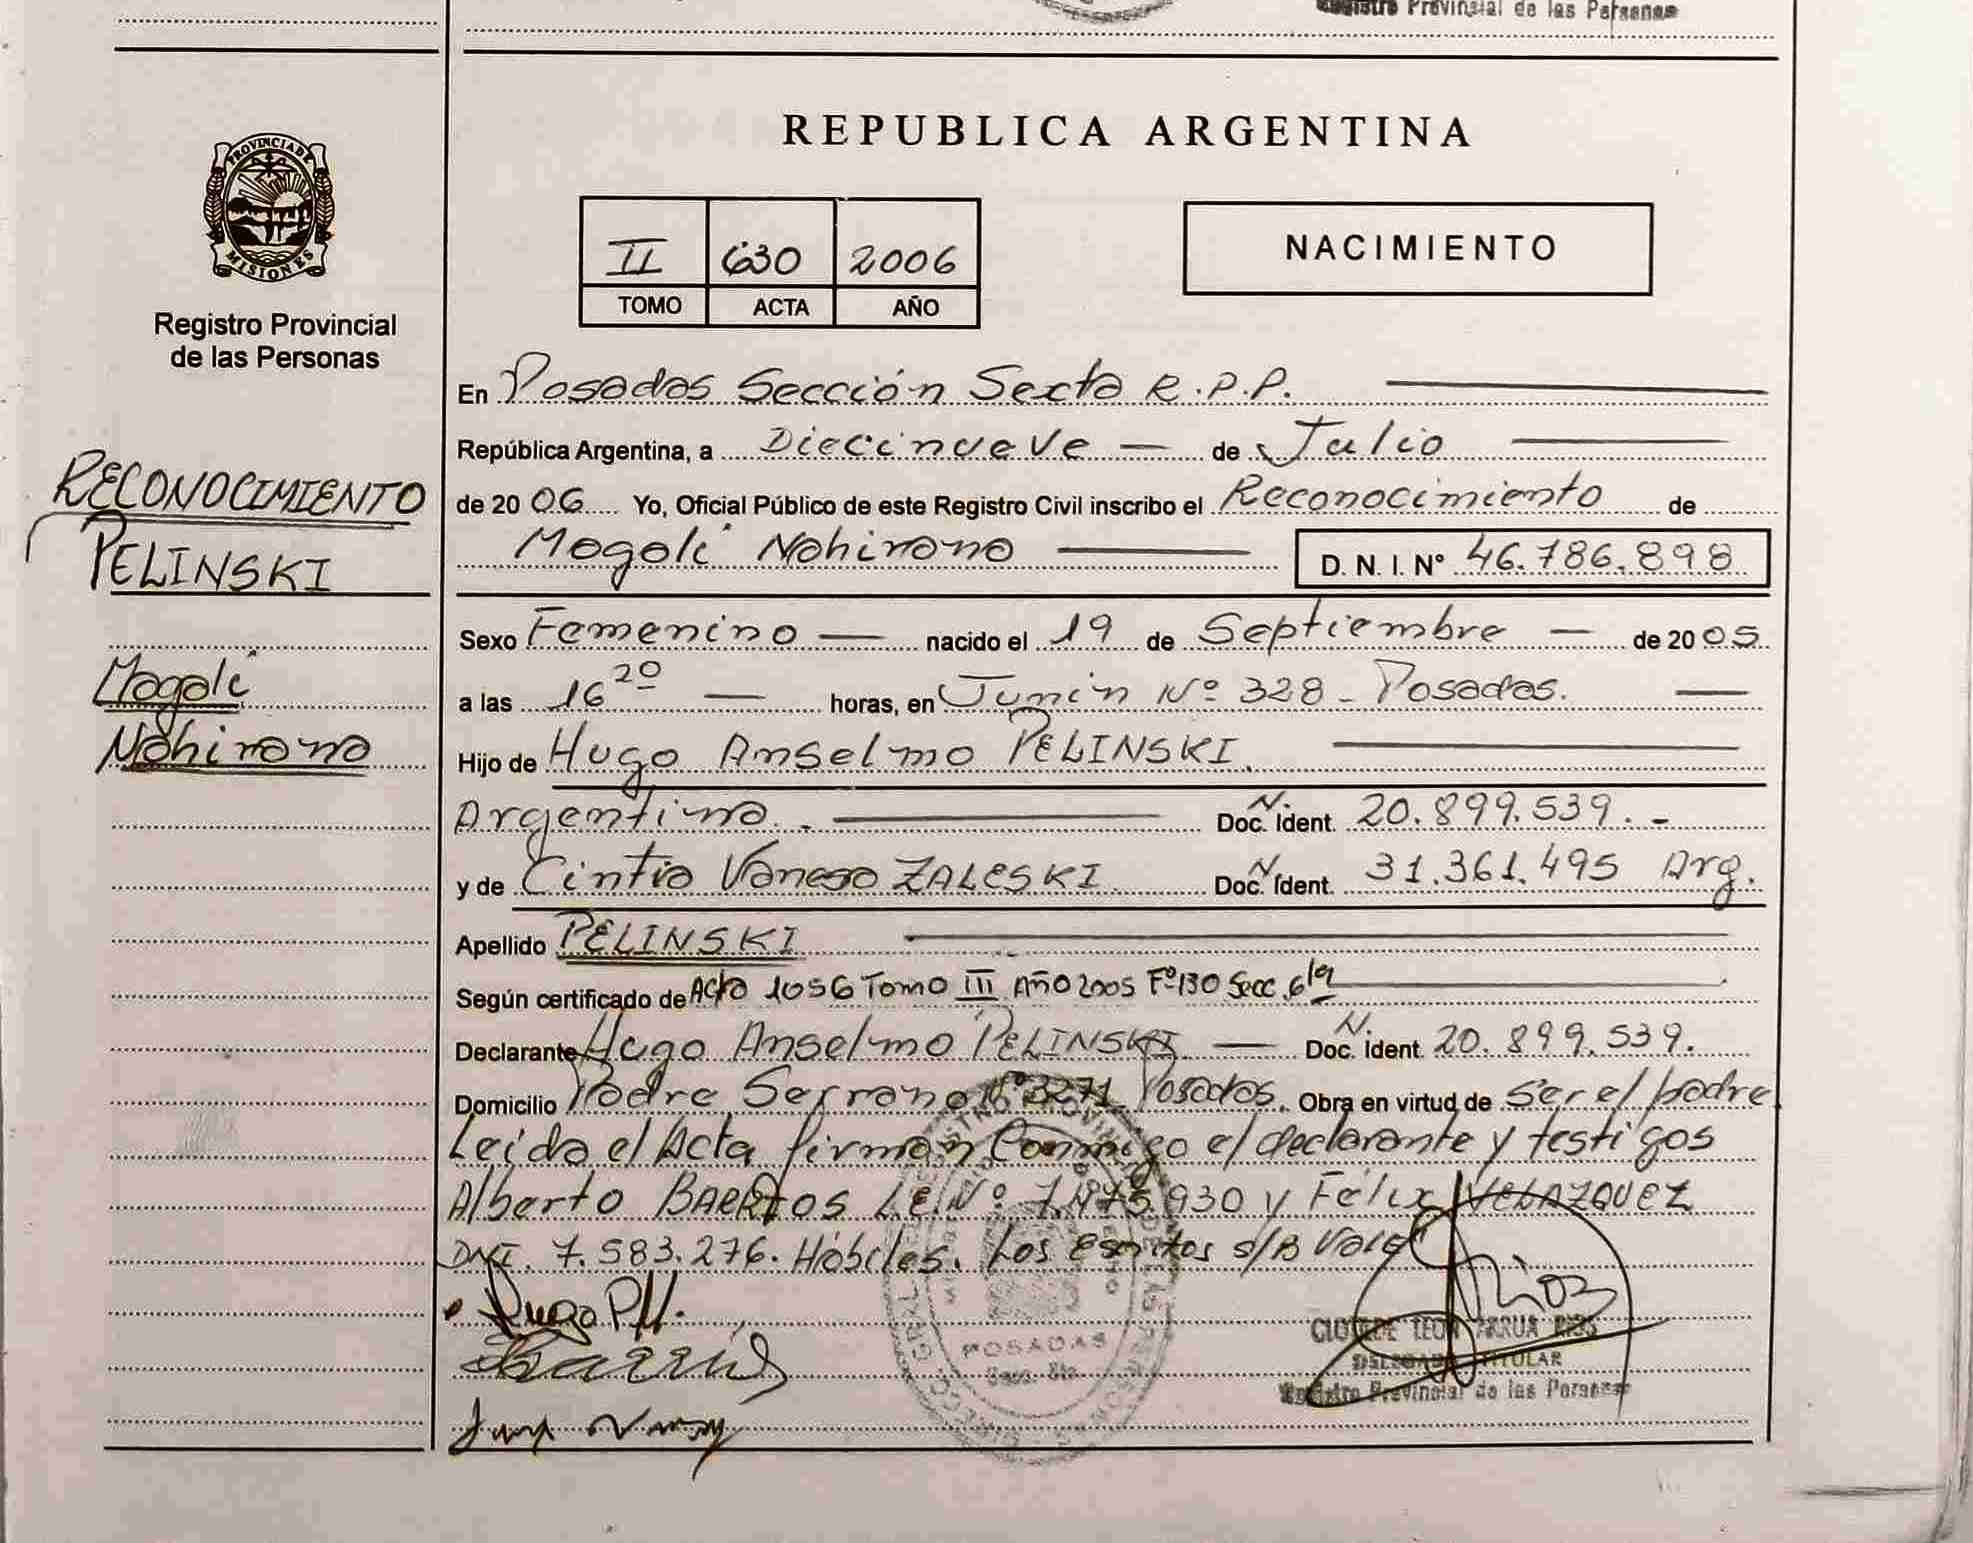 Registro Provincial de las Personas
PROVINCIA DE
MISIONES
Registro Provincial
de las Personas
RECONOCIMIENTO
PELINSKI
Magali
Nahirana
REPUBLICA ARGENTINA
II 630 2006
TOMO ACTA AÑO
NACIMIENTO
En Posadas Sección Sexta R.P.P.
República Argentina, a Diecinueve — de Julio
de 20 06 Yo, Oficial Público de este Registro Civil inscribo el Reconocimiento de
Magali Nahirana D. N. I. Nº 46.786.898
Sexo Femenino — nacido el 19 de Septiembre — de 20 05
a las 16 20 — horas, en Junín Nº 328 - Posadas.
Hijo de Hugo Anselmo PELINSKI.
Argentina. Doc. N. Ident. 20.899.539. -
y de Cintia Vanesa ZALESKI Doc. N. Ident. 31.361.495 Arg.
Apellido PELINSKI
Según certificado de Acta 1056 Tomo III Año 2005 Fº 130 Secc. 6ta
Declarante Hugo Anselmo PELINSKI — Doc. N. Ident. 20.899.539.
Domicilio Padre Serrano Nº 3271 Posadas. Obra en virtud de Ser el padre
Leída el Acta firman Conmigo el declarante y testigos
Alberto BARRIOS L.E. Nº 7.475.930 y Félix VELAZQUEZ
DNI. 7.583.276. Hábiles. Los Escritos s/B Vale
Hugo P.
POSADAS
Secc. 6ta
Rios
DELEGADA TITULAR
Registro Provincial de las Personas